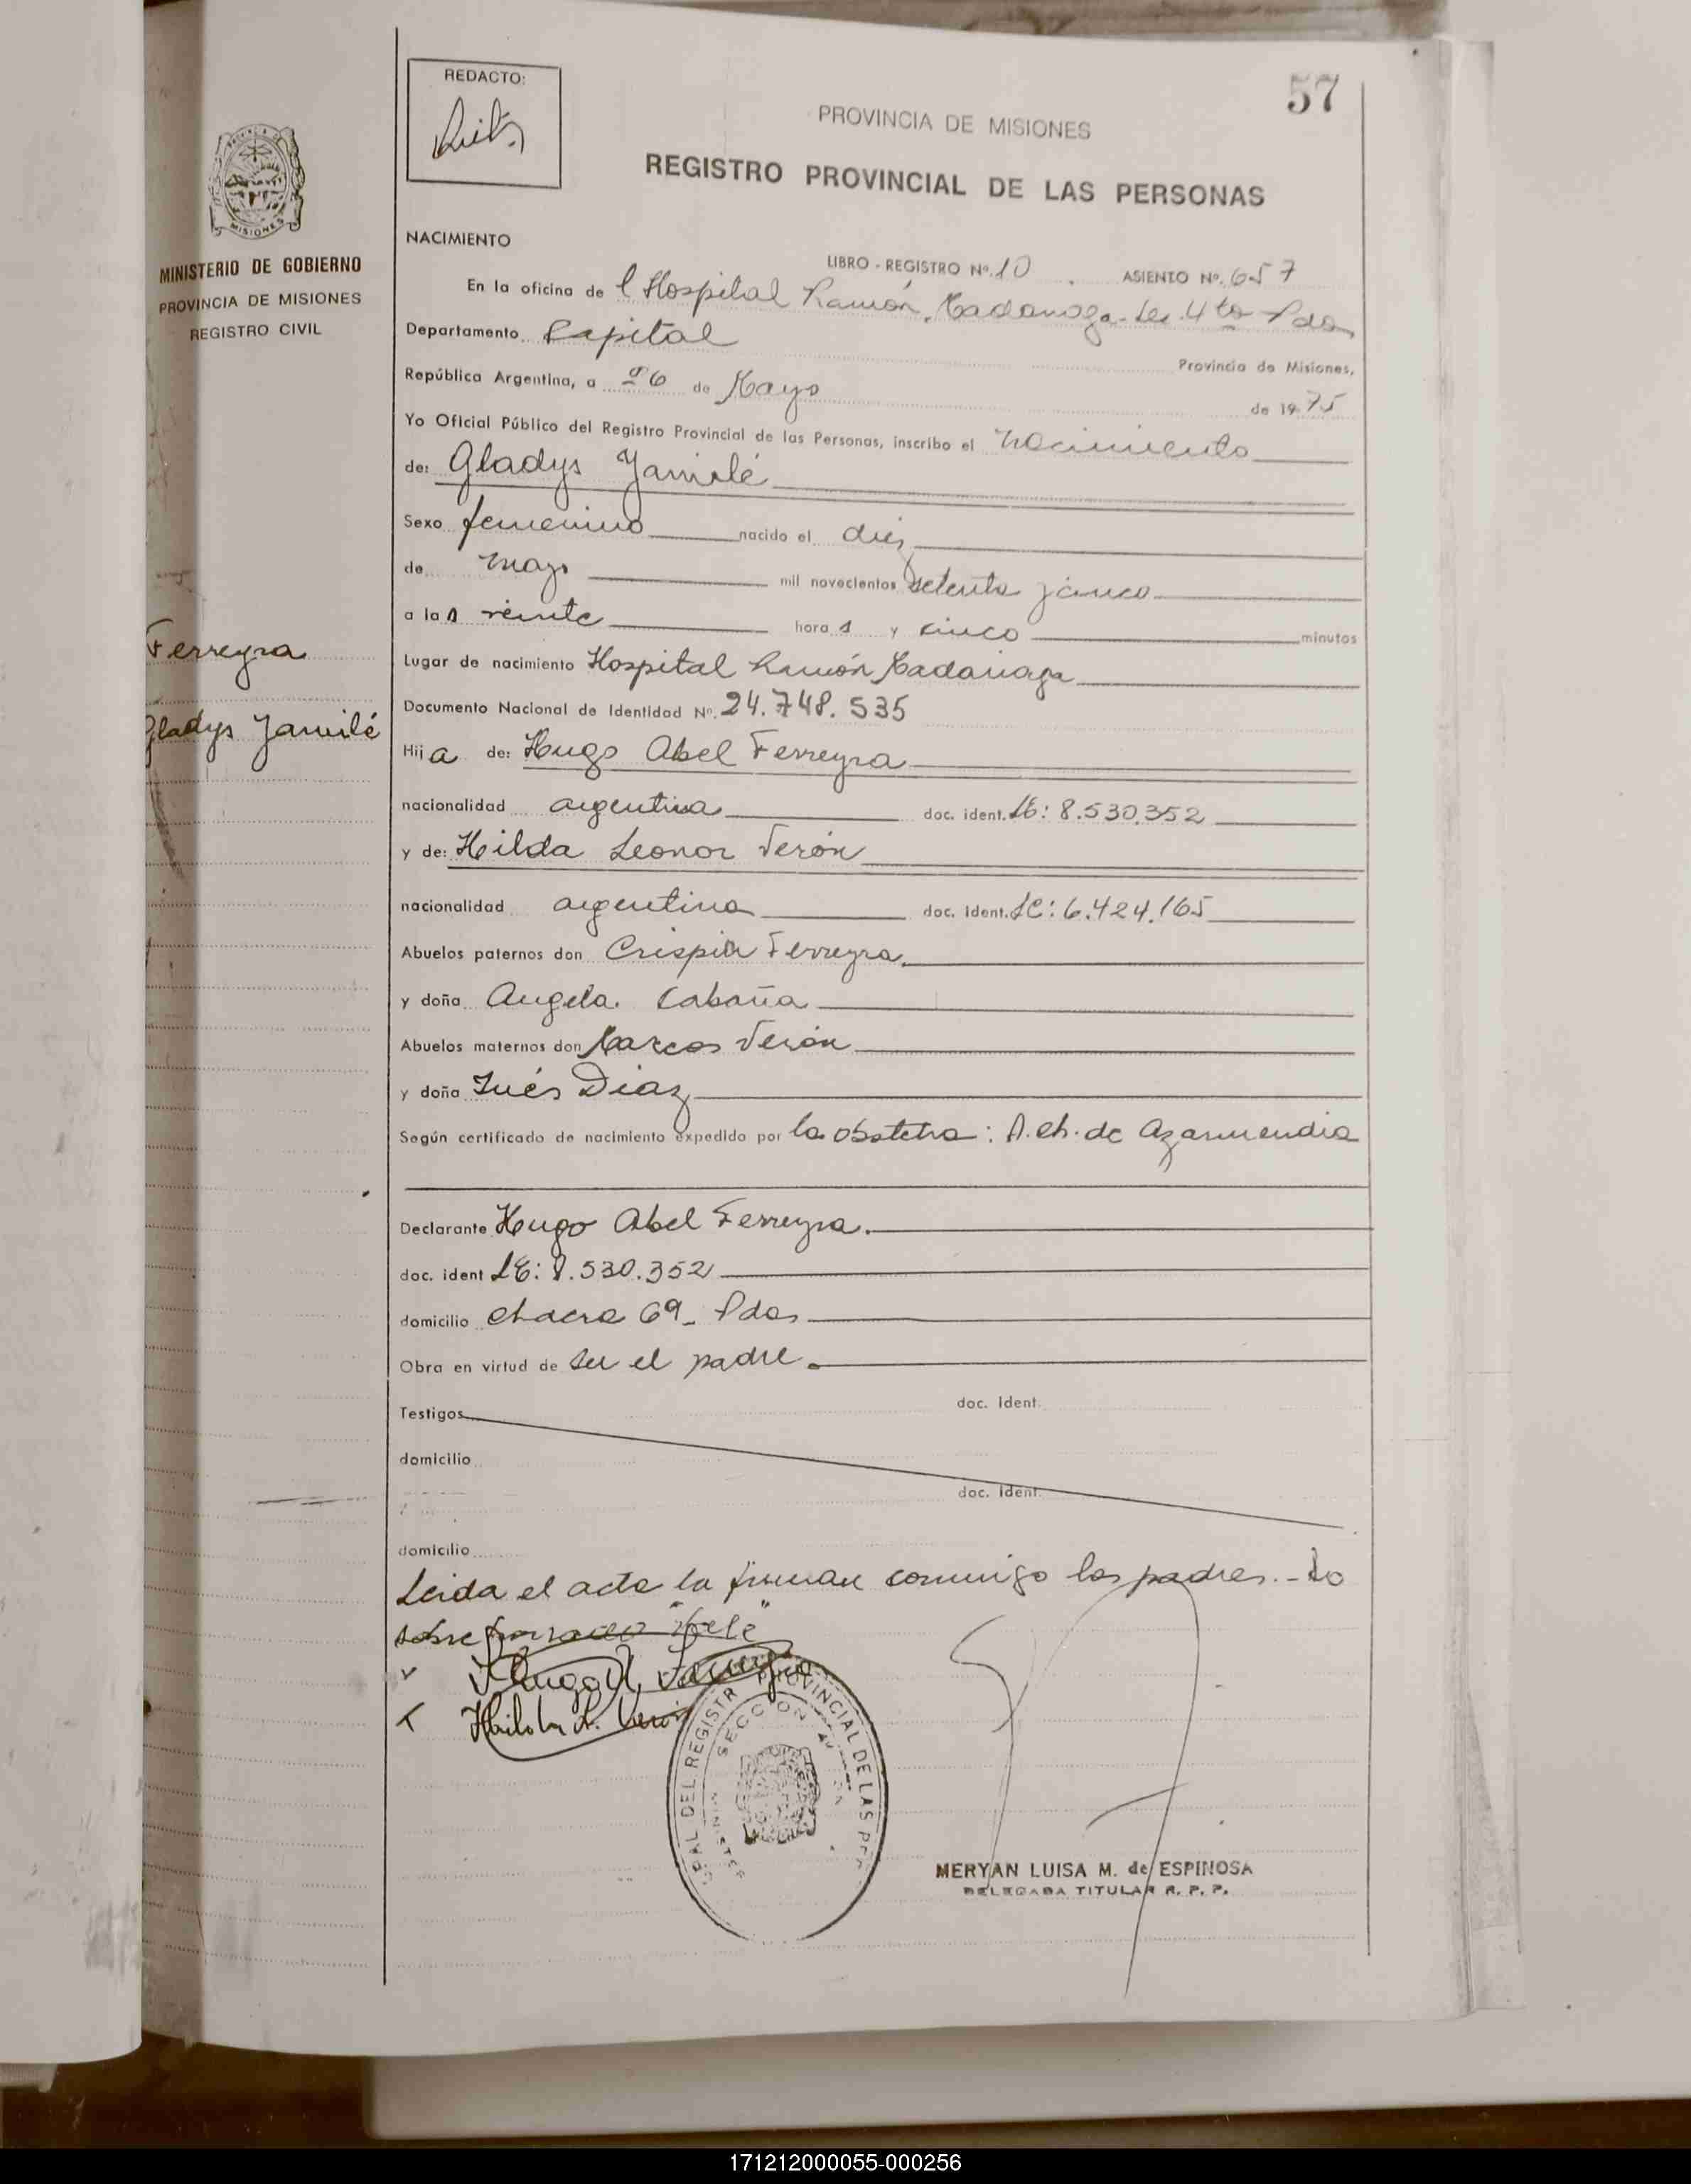 57
REDACTO:
PROVINCIA DE MISIONES
REGISTRO PROVINCIAL DE LAS PERSONAS
MISIONES
MINISTERIO DE GOBIERNO
PROVINCIA DE MISIONES
REGISTRO CIVIL
NACIMIENTO
LIBRO - REGISTRO Nº. 10 ASIENTO Nº. 657
En la oficina de l Hospital Ramón Madariaga - Sec. 4ta Pdas
Departamento Capital
Provincia de Misiones,
República Argentina, a 26 de Mayo de 1975
Yo Oficial Público del Registro Provincial de las Personas, inscribo el nacimiento
de: Gladys Yamilé
Sexo femenino nacido el diez
de mayo mil novecientos setenta y cinco
a las veinte horas y cinco minutos
Ferreyra
Lugar de nacimiento Hospital Ramón Madariaga
Documento Nacional de Identidad Nº. 24.748.535
Gladys Yamilé
Hija de: Hugo Abel Ferreyra
nacionalidad argentina doc. ident. LE: 8.530.352
y de: Hilda Leonor Verón
nacionalidad argentina doc. Ident. LC: 6.424.165
Abuelos paternos don Crispín Ferreyra
y doña Angela Cabaña
Abuelos maternos don Marcos Verón
y doña Inés Diaz
Según certificado de nacimiento expedido por la obstetra: A. Ch. de Azarmendia
Declarante Hugo Abel Ferreyra.
doc. ident LE: 8.530.352
domicilio chacra 69 - Pdas
Obra en virtud de ser el padre
Testigos doc. Ident.
domicilio
doc. Ident.
domicilio
Leida el acta la firman conmigo los padres. - Lo
sobreborrado
Hugo A. Ferreyra
Hilda L. Verón
REGISTR PROVINCIAL DE LAS PER
SECCION
MERYAN LUISA M. de ESPINOSA
DELEGADA TITULAR R. P. P.
171212000055-000256